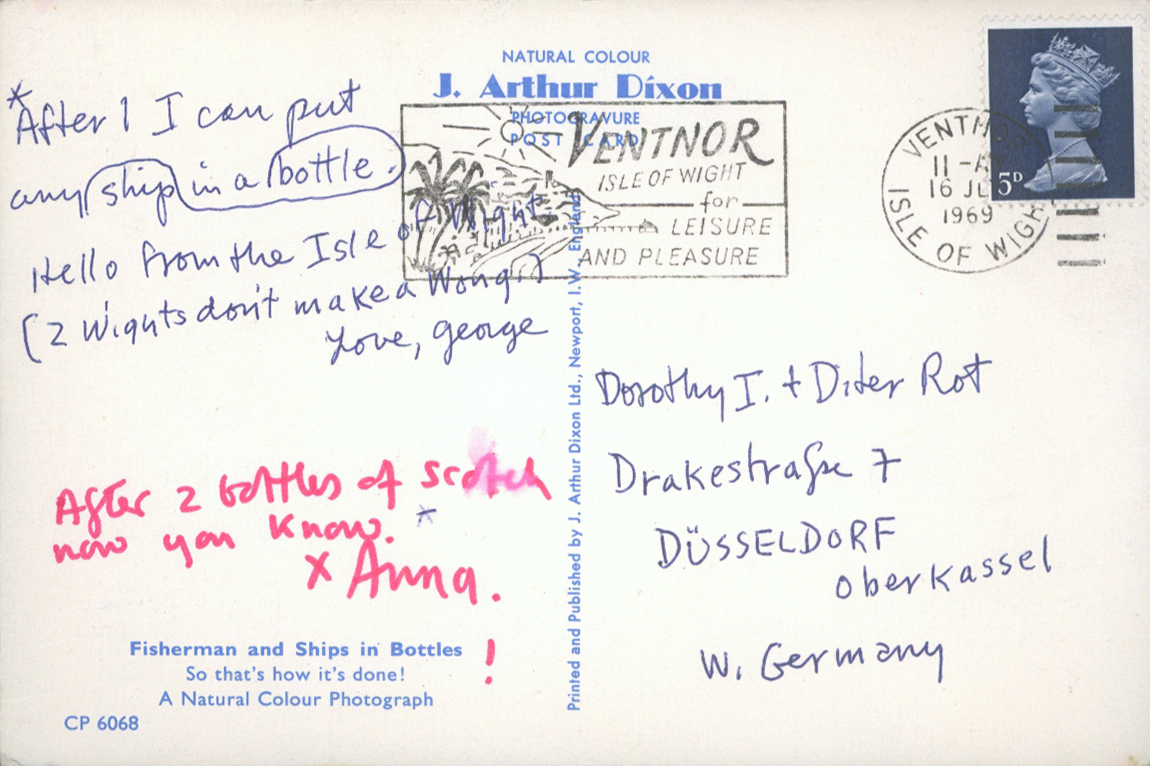 NATURAL COLOUR
J. Arthur Dixon
PHOTOGRAVURE
POST CARD
VENTNOR
ISLE OF WIGHT
for
LEISURE
AND PLEASURE
VENTNOR
11 - A
16 JL
1969
ISLE OF WIGHT
5D
*After 1 I can put
any ship in a bottle.
Hello from the Isle of Wight
(2 Wights don't make a Wong!)
Love, george
After 2 bottles of scotch
now you know. *
x Anna.
!
Fisherman and Ships in Bottles
So that's how it's done!
A Natural Colour Photograph
CP 6068
Printed and Published by J. Arthur Dixon Ltd., Newport, I.W., England
Dorothy I. + Diter Rot
Drakestraße 7
DÜSSELDORF
oberkassel
W. Germany